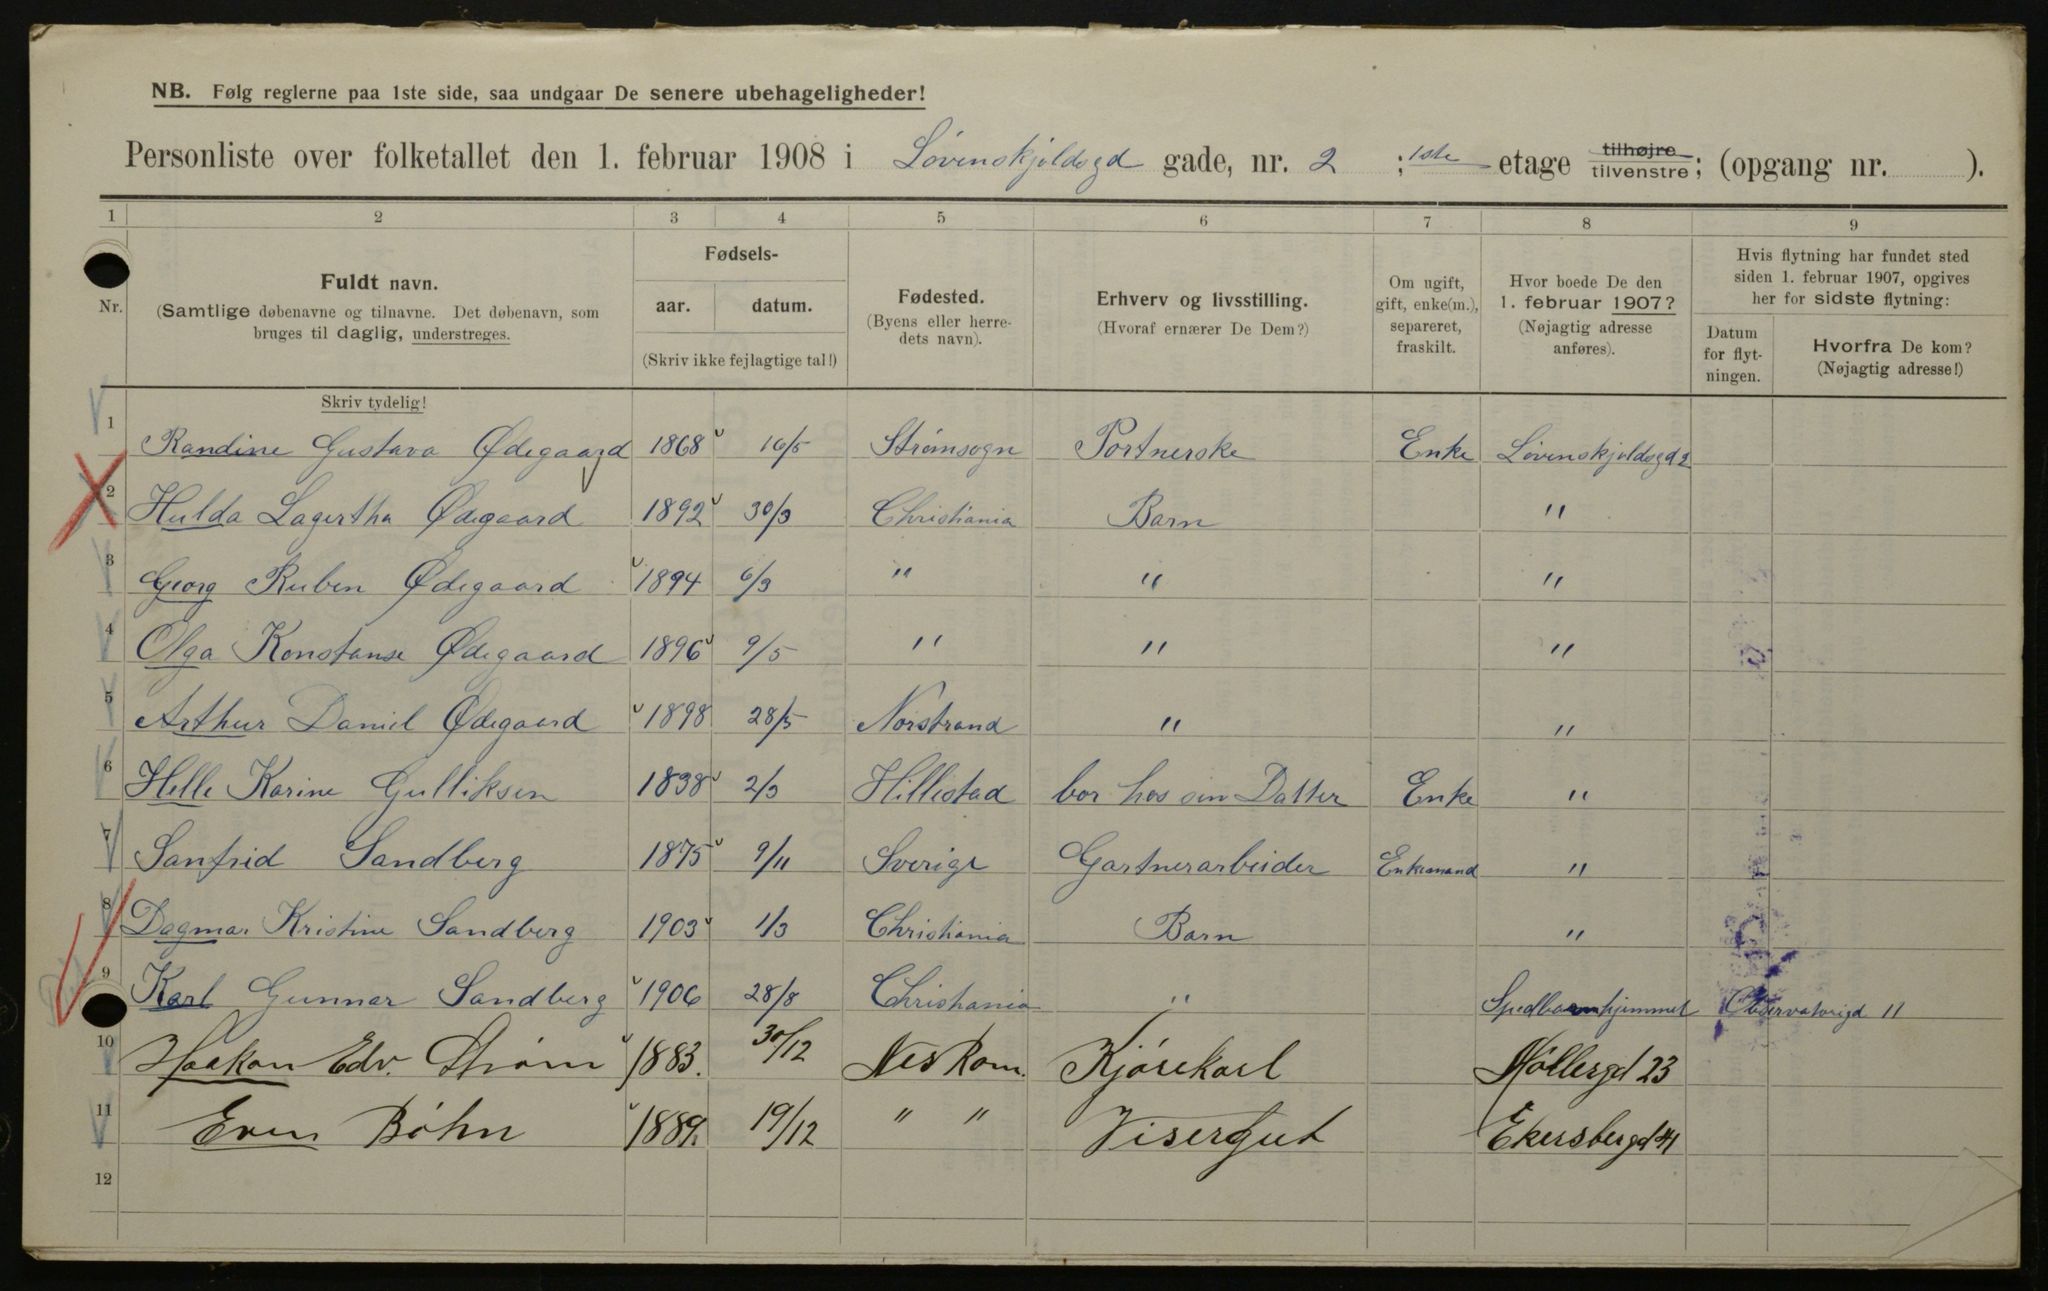 NB. Følg reglerne paa 1ste side, saa undgaar De senere ubehageligheder!
Personliste over folketallet den 1. februar 1908 i Løvenskjoldsgd gade, nr. 2 ; 1ste etage tilhøjre tilvenstre; (opgang nr. ).
1 2 3 4 5 6 7 8 9
Nr.
Fuldt navn.
(Samtlige døbenavne og tilnavne. Det døbenavn, som
bruges til daglig, understreges.
Fødsels-
aar. datum.
(Skriv ikke fejlagtige tal!)
Fødested.
(Byens eller herre-
dets navn).
Erhverv og livsstilling.
(Hvoraf ernærer De Dem?)
Om ugift,
gift, enke(m.),
separeret,
fraskilt.
Hvor boede De den
1. februar 1907?
(Nøjagtig adresse
anføres).
Hvis flytning har fundet sted
siden 1. februar 1907, opgives
her for sidste flytning:
Datum
for flyt-
ningen.
Hvorfra De kom?
(Nøjagtig adresse!)
Skriv tydelig!
1 Randine Gustava Ødegaard 1868 16/5 Strømsogn Portnerske Enke Løvenskjoldsgd 2
2 Hulda Lagertha Ødegaard 1892 30/3 Christiania Barn "
3 Georg Ruben Ødegaard 1894 6/3 " " "
4 Olga Konstanse Ødegaard 1896 9/5 " " "
5 Arthur Daniel Ødegaard 1898 28/5 Norstrand " "
6 Helle Karine Gulliksen 1838 2/3 Hillestad bor hos sin Datter Enke "
7 Sanfrid Sandberg 1875 9/11 Sverige Gartnerarbeider Enkemand "
8 Dagmar Kristine Sandberg 1903 1/3 Christiania Barn "
9 Karl Gunnar Sandberg 1906 28/8 Christiania " Spedbarnhjemmet Observatorigd 11
10 Haakon Edv. Strøm 1883. 30/12 Nes Rom. Kjørekarl Møllergd 23
11 Even Bøhn 1889. 19/12 " " Visergut Ekersbergd 41
12